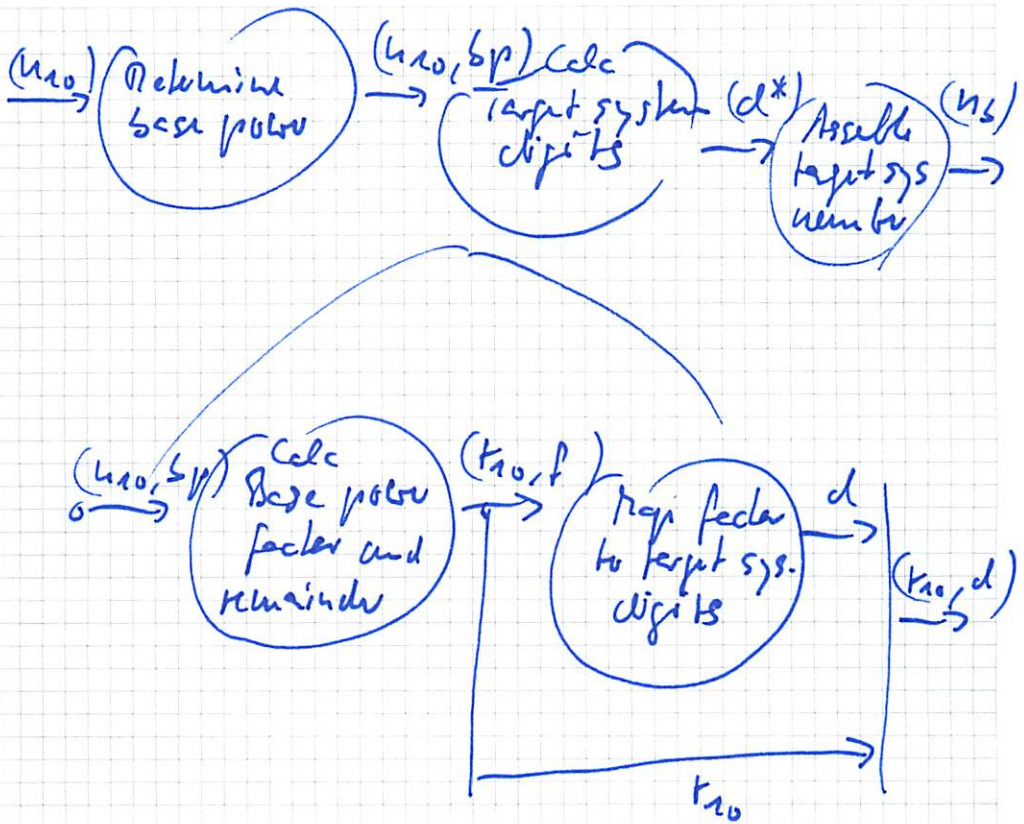 (n10)
Determine
base power
(n10, bp)
Calc
Target system
digits
(d*)
Assemble
target sys
number
(ns)
(n10, bp)
Calc
Base power
factor and
remainder
(r10, f)
Map factor
to target sys.
digits
d
(r10, d)
r10